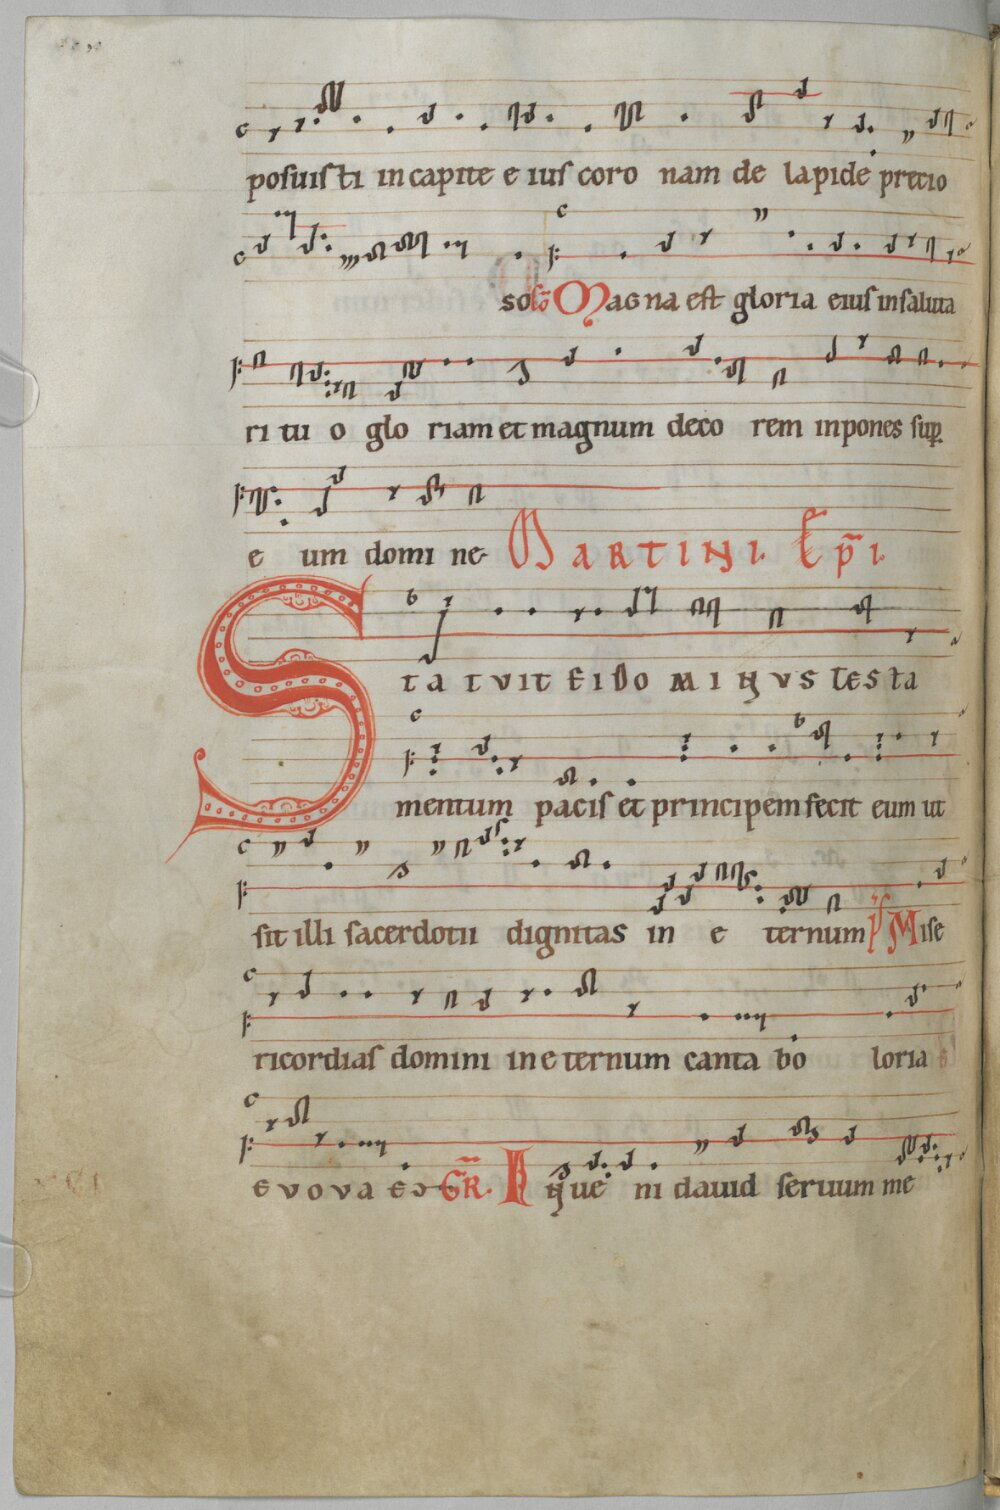 posuisti in capite e ius coro nam de lapide precio
so Co᷃ Magna est gloria eius in saluta
ri tu o glo riam et magnum deco rem inpones sup̱
e um domi ne MARTINI. Ep̄i.
STATVIT EI DOMINVS testa
mentum pacis et principem fecit eum ut
sit illi sacerdotii dignitas in e ternum p̄s Mise
ricordias domini in e ternum canta bo loria
EVOVAE GR̄. Inue ni dauid seruum me